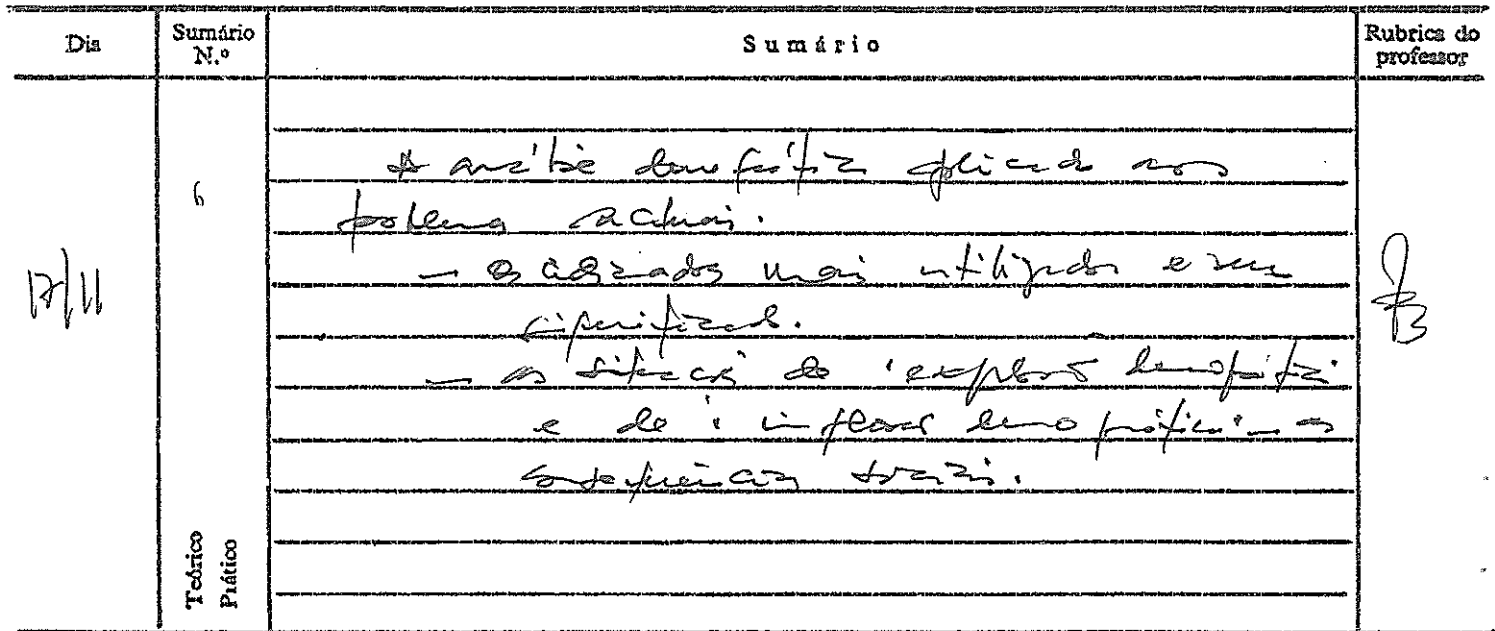 Dia
Sumário N.º
Sumário
Rubrica do professor
17/11
6
A análise demográfica aplicada aos
problemas actuais.
— os mais utilizados e seu
significado.
— as situações de "explosão demográfica"
e de "implosão demográfica" — as
consequências sociais.
Teórico
Prático